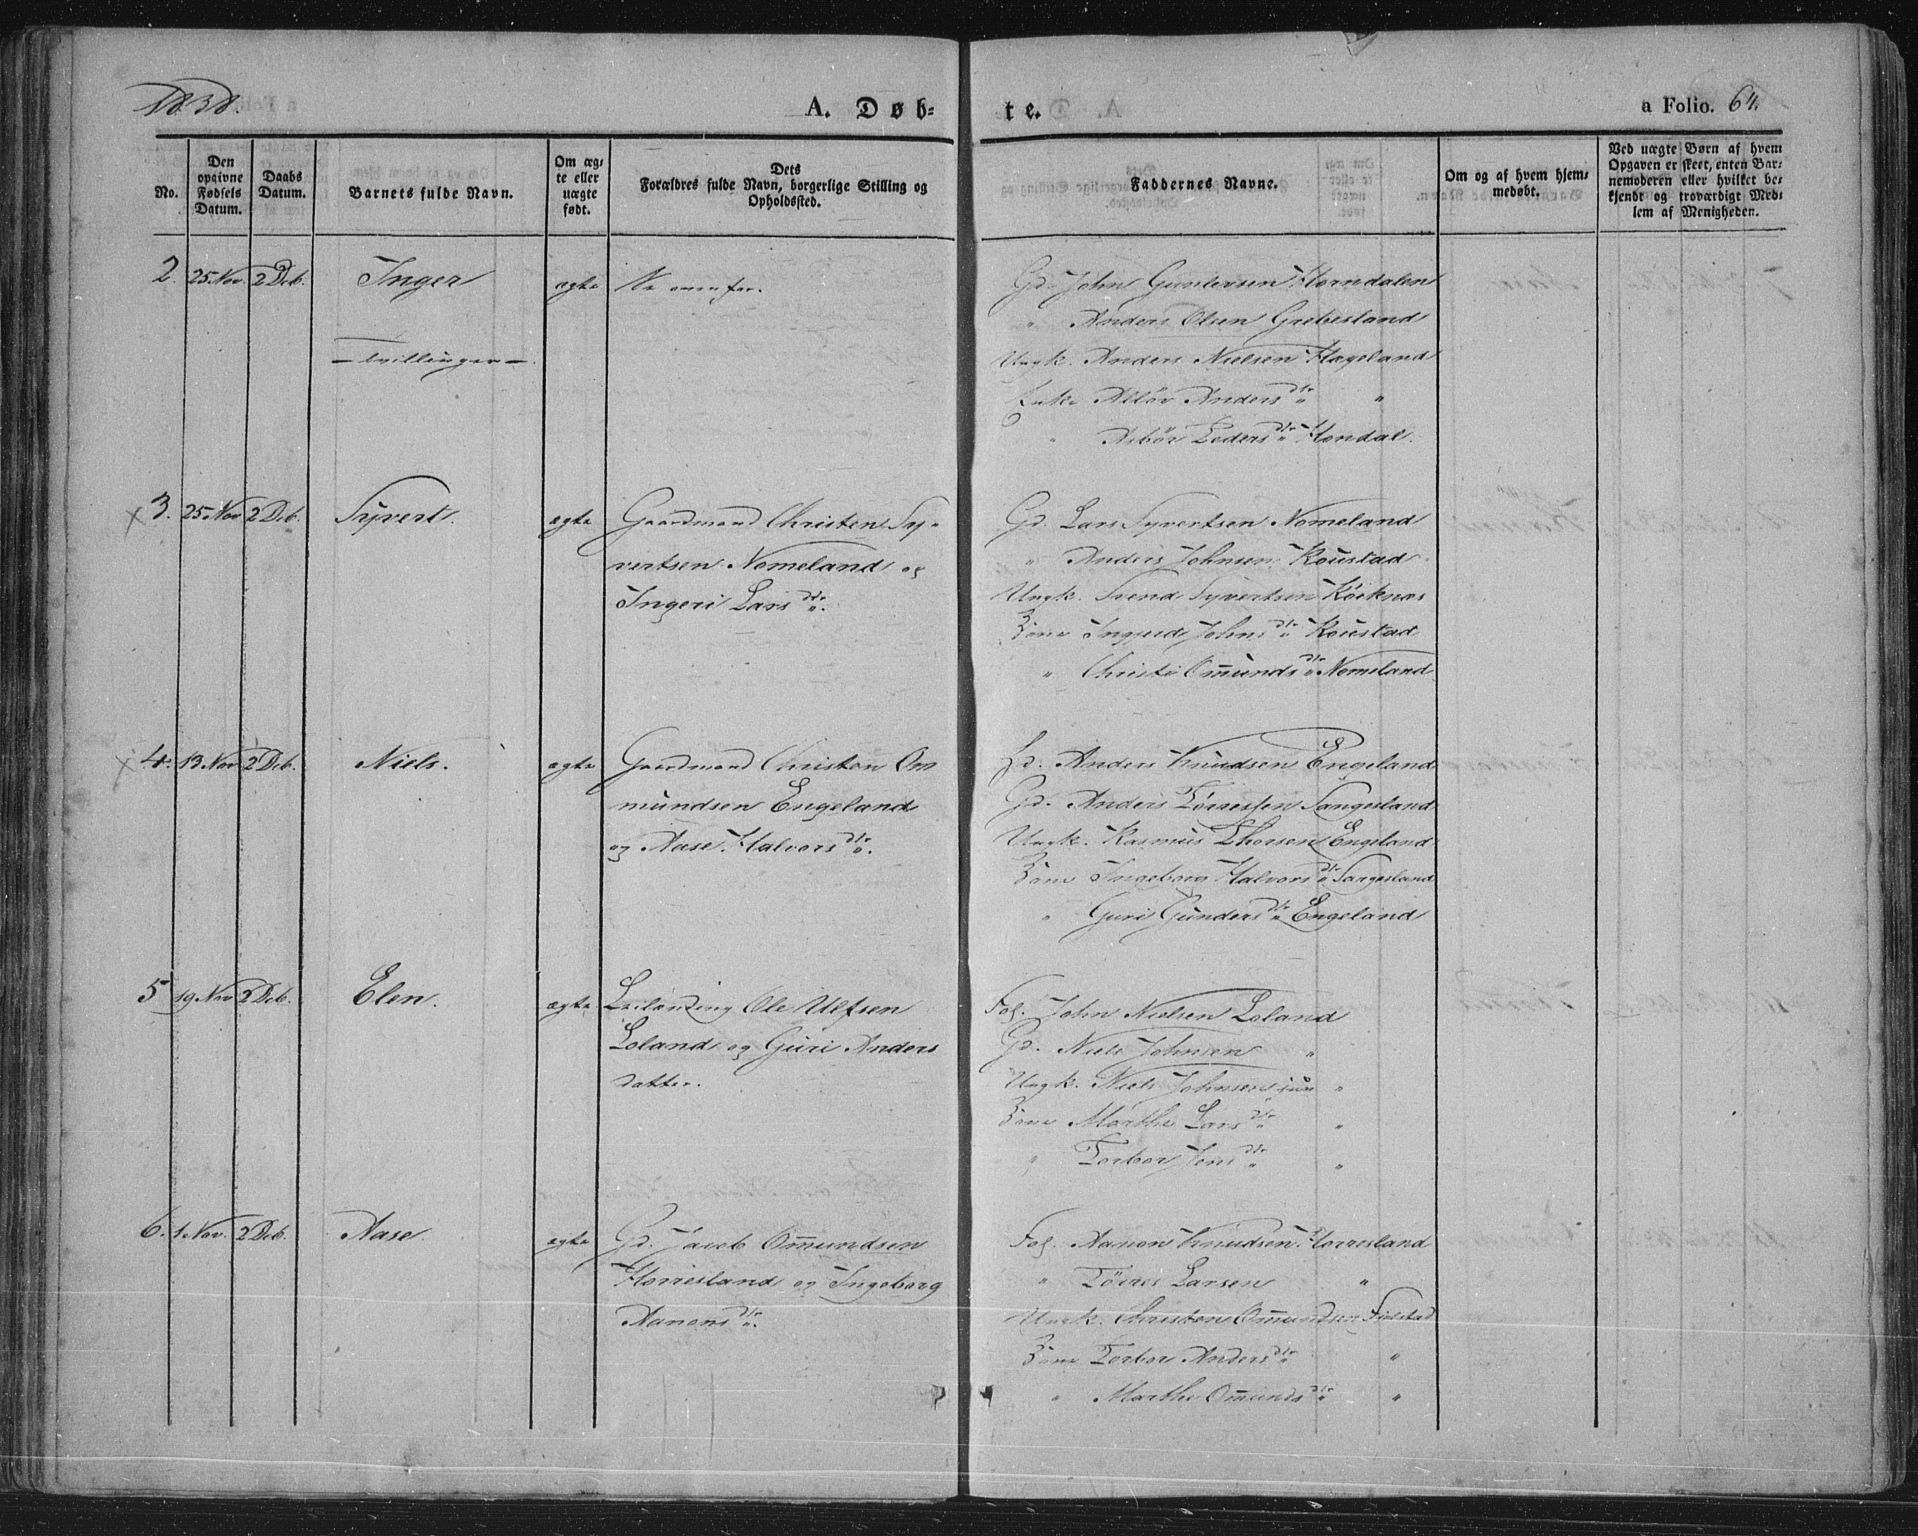 1838.
A. Døb-
te.
a Folio. 64.
No.
Den opgivne Fødsels Datum.
Daabs Datum.
Barnets fulde Navn.
Om ægte eller uægte født.
Dets Forældres fulde Navn, borgerlige Stilling og Opholdssted.
Faddernes Navne.
Om og af hvem hjemmedøbt.
Ved uægte Børn af hvem Opgaven er skeet, enten Barnemoderen eller hvilket bekjendt og troværdigt Medlem af Menigheden.
2. 25 Nov 2 Deb. Inger ægte
Gd. John Guntersen Horndalen
" Anders Olsen Grebesland
- tvillinger -
Ungk. Anders Nielsen Hageland
Enke Anders dtr "
" Asbør Peders dtr
3. 25 Nov 2 Deb. Syvert. ægte Gaardmand Christen Sy-
vertsen Nomeland og
Ingeri Lars dtr.
Gd. Lars Syvertsen Nomeland
" Anders Johnsen Roustad
Ungk. Svend Syvertsen
Kone Ingrid Johns dtr Roustad
" Christi Omunds dtr Nomeland
4. 13 Nov 2 Deb. Niels. ægte Gaardmand Christen Om
mundsen Engeland
og Aase Halvors dtr.
Anders Knudsen Engeland
Gd. Anders Tørressen Sangesland
Ungk. Rasmus Thorsen Engeland
Kone Ingeborg Halvors dtr Sangesland
" Guri Gunders dtr Engeland
5 19 Nov 2 Deb. Elen. ægte Leilænding Ole Ulfsen
Loland og Guri Anders
datter.
Fol. John Nielsen Loland
Gd. Niels Johnsen "
Ungk. Niels Johnsen jun "
Kone Marthe Lars dtr "
" Torbor Jons dtr "
6. 1 Nov. 2 Deb. Aase. ægte Gd. Jacob Omundsen
Horresland og Ingeborg
Aanens dtr.
Fol. Aanon Knudsen Horresland
" Tørres Larsen "
Ungk. Christen Omundsen Fidstad
Kone Torbor Anders dtr "
" Marthe Omunds dtr "